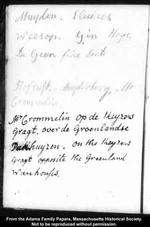 Muyden. Sluices
Weesop. Gin House
de Groen five Louts
Hofrust. Muyderberg. Mr
Crommelin.
Mr Crommelin op de Keyzers
Gragt, over de Groenlandse
Pakhuyzen. on the Keyzers
Gragt opposite the Greenland
Warehouses.
From the Adams Family Papers, Massachusetts Historical Society.
Not to be reproduced without permission.